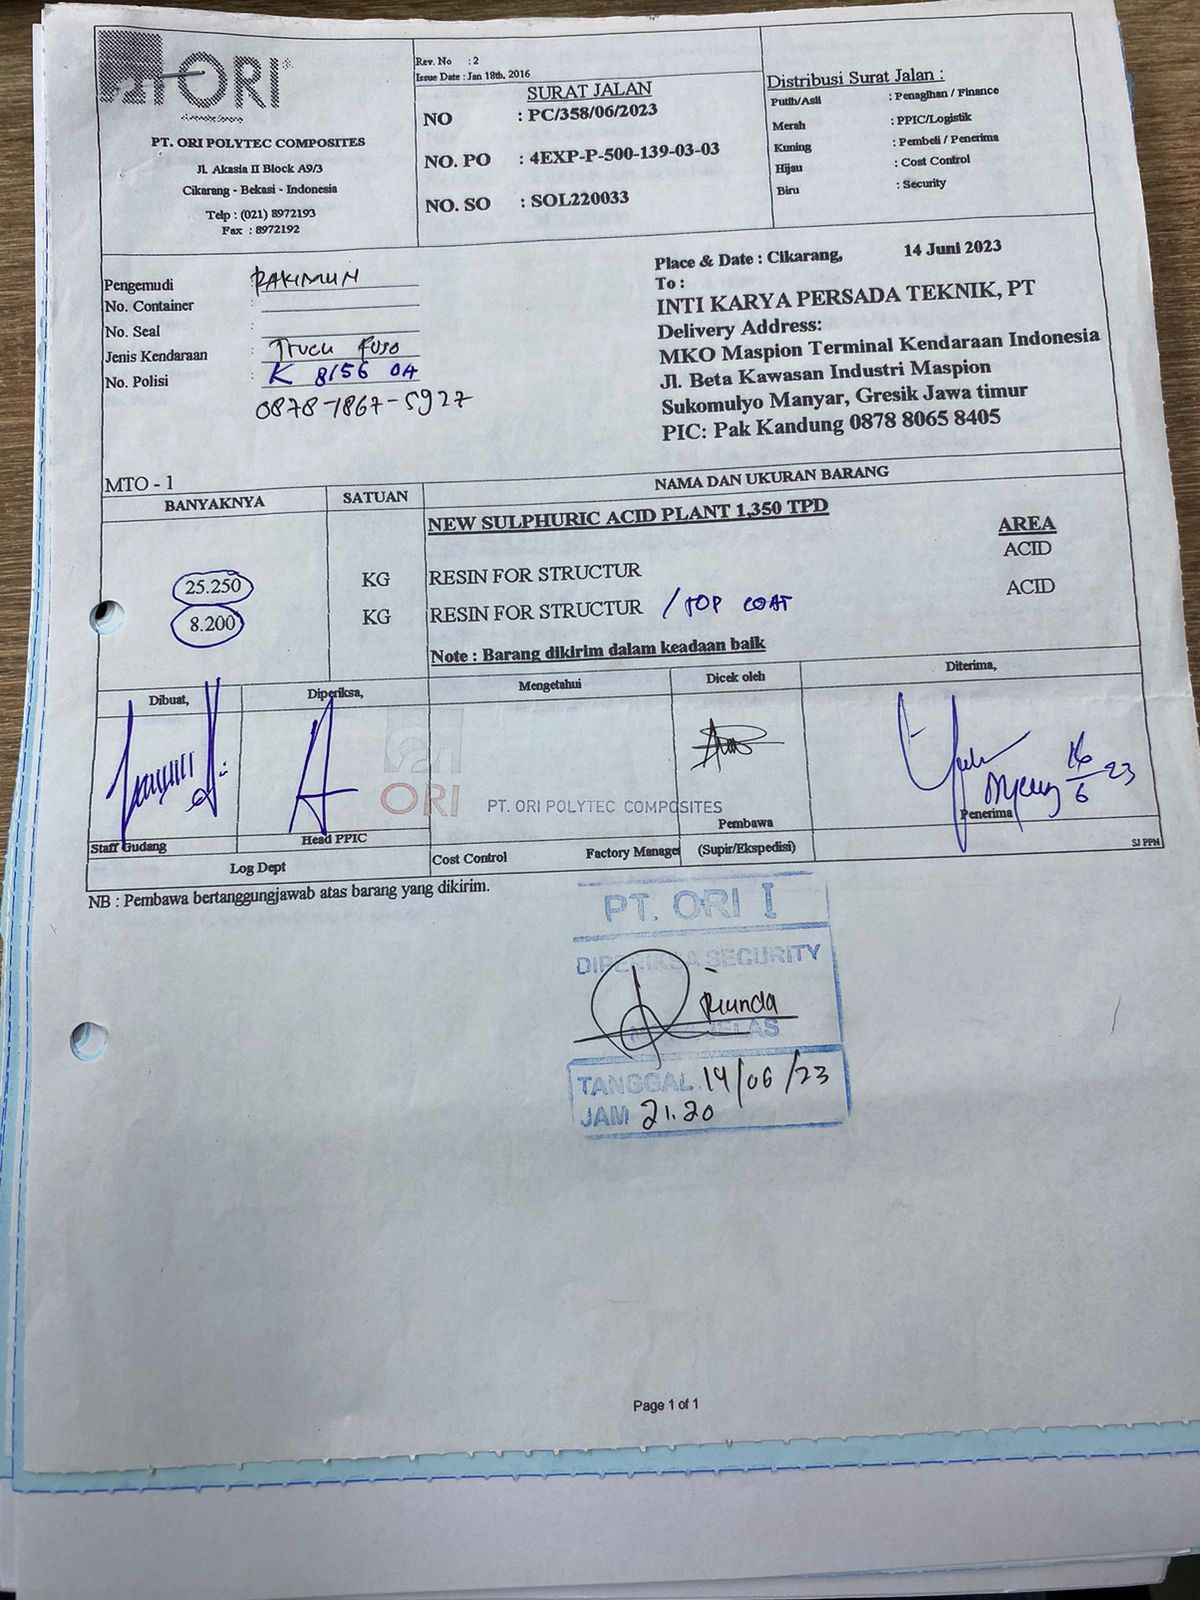 ORI
PT. ORI POLYTEC COMPOSITES
Jl. Akasia II Block A9/3
Cikarang - Bekasi - Indonesia
Telp : (021) 8972193
Fax : 8972192
Rev. No : 2
Issue Date : Jan 18th, 2016
SURAT JALAN
NO : PC/358/06/2023
NO. PO : 4EXP-P-500-139-03-03
NO. SO : SOL220033
Distribusi Surat Jalan :
Putih/Asli : Penagihan / Finance
Merah : PPIC/Logistik
Kuning : Pembeli / Penerima
Hijau : Cost Control
Biru : Security
Pengemudi : RAKIMUN
No. Container :
No. Seal :
Jenis Kendaraan : Truck Fuso
No. Polisi : K 8156 OA
0878-7867-5927
Place & Date : Cikarang, 14 Juni 2023
To :
INTI KARYA PERSADA TEKNIK, PT
Delivery Address:
MKO Maspion Terminal Kendaraan Indonesia
Jl. Beta Kawasan Industri Maspion
Sukomulyo Manyar, Gresik Jawa timur
PIC: Pak Kandung 0878 8065 8405
MTO - 1
BANYAKNYA SATUAN NAMA DAN UKURAN BARANG
NEW SULPHURIC ACID PLANT 1,350 TPD AREA
25.250 KG RESIN FOR STRUCTUR ACID
8.200 KG RESIN FOR STRUCTUR / TOP COAT ACID
Note : Barang dikirim dalam keadaan baik
Dibuat, Diperiksa, Mengetahui Dicek oleh Diterima,
16/6-23
ORI PT. ORI POLYTEC COMPOSITES
Staff Gudang Head PPIC Pembawa Penerima
Log Dept Cost Control Factory Manager (Supir/Ekspedisi) SJ PPN
NB : Pembawa bertanggungjawab atas barang yang dikirim.
PT. ORI I
DIPERIKSA SECURITY
TANGGAL 14/06/23
JAM 21.20
Page 1 of 1